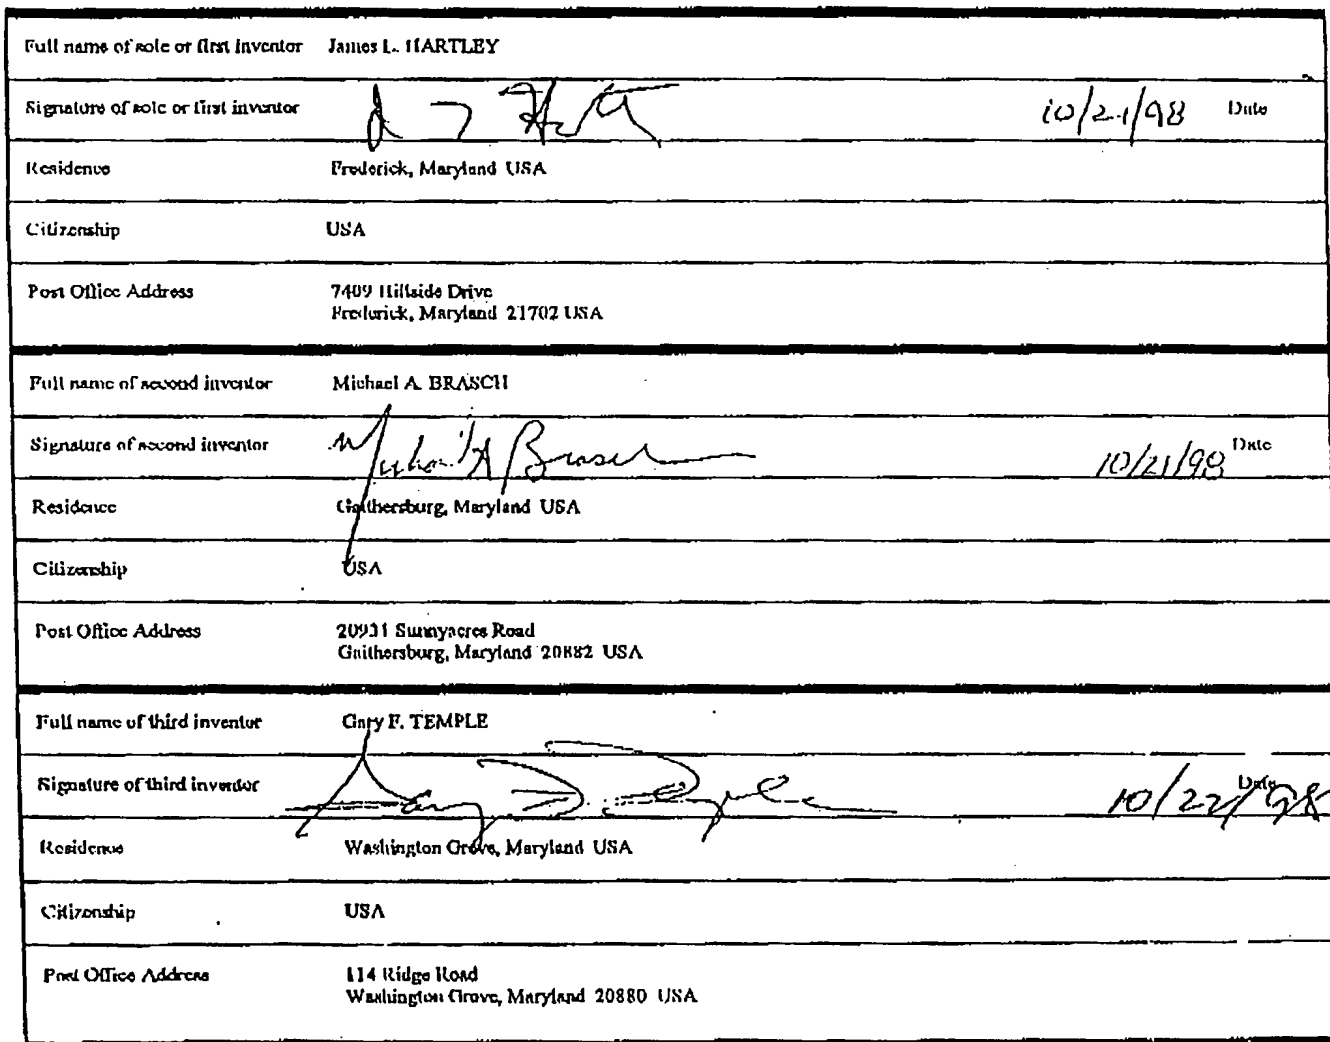 Full name of sole or first inventor James L. HARTLEY
Signature of sole or first inventor 10/21/98 Date
Residence Frederick, Maryland USA
Citizenship USA
Post Office Address 7409 Hillside Drive
Frederick, Maryland 21702 USA
Full name of second inventor Michael A. BRASCH
Signature of second inventor Michael A Brasch 10/21/98 Date
Residence Gaithersburg, Maryland USA
Citizenship USA
Post Office Address 20931 Sunnyacres Road
Gaithersburg, Maryland 20882 USA
Full name of third inventor Gary F. TEMPLE
Signature of third inventor Gary F. Temple 10/22/98 Date
Residence Washington Grove, Maryland USA
Citizenship USA
Post Office Address 114 Ridge Road
Washington Grove, Maryland 20880 USA